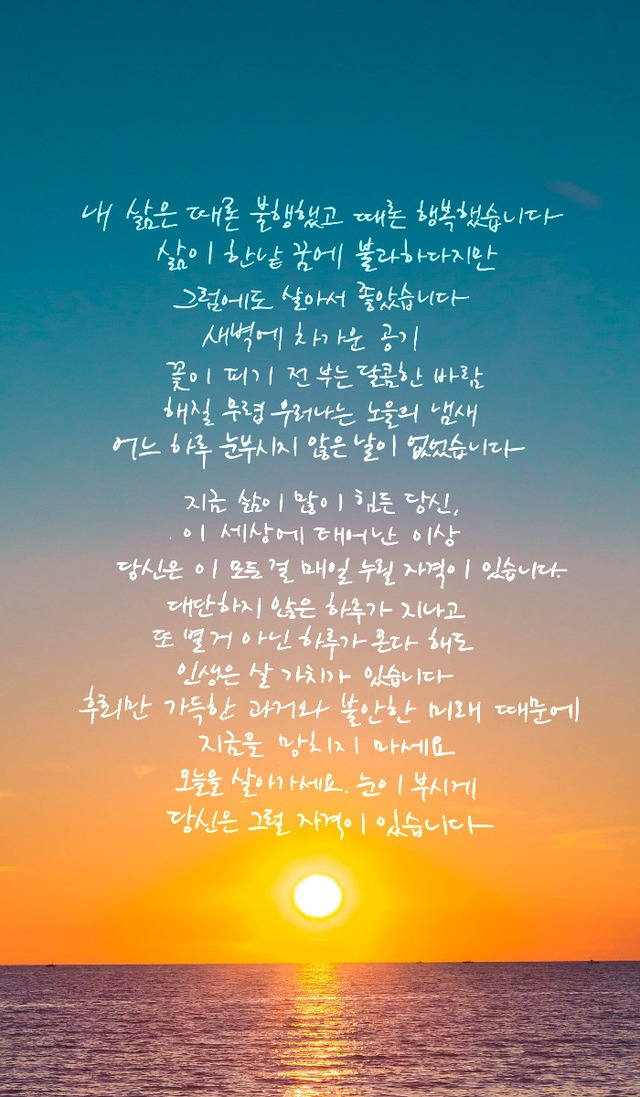 내 삶은 때론 불행했고 때론 행복했습니다
삶이 한낱 꿈에 불과하다지만
그럼에도 살아서 좋았습니다
새벽에 차가운 공기
꽃이 피기 전 부는 달콤한 바람
해질 무렵 우러나는 노을의 냄새
어느 하루 눈부시지 않은 날이 없었습니다
지금 삶이 많이 힘든 당신,
이 세상에 태어난 이상
당신은 이 모든 걸 매일 누릴 자격이 있습니다.
대단하지 않은 하루가 지나고
또 별 거 아닌 하루가 온다 해도
인생은 살 가치가 있습니다
후회만 가득한 과거와 불안한 미래 때문에
지금을 망치지 마세요
오늘을 살아가세요. 눈이 부시게
당신은 그럴 자격이 있습니다